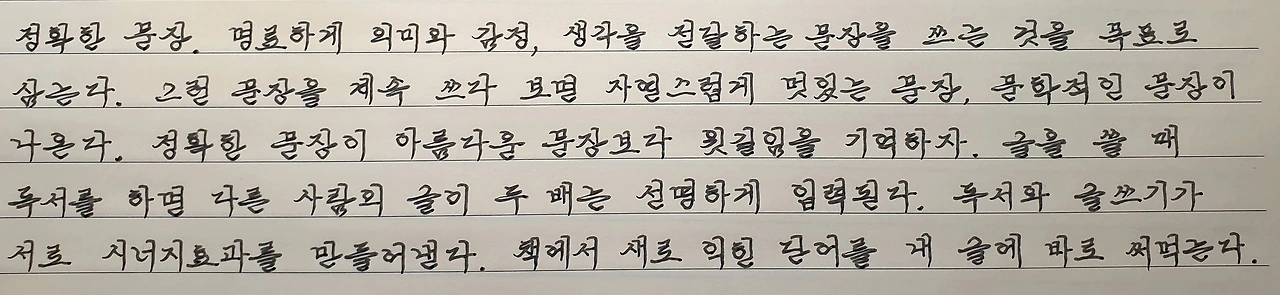 정확한 문장. 명료하게 의미와 감정, 생각을 전달하는 문장을 쓰는 것을 목표로
삼는다. 그런 문장을 계속 쓰다 보면 자연스럽게 멋있는 문장, 문학적인 문장이
나온다. 정확한 문장이 아름다운 문장보다 윗길임을 기억하자. 글을 쓸 때
독서를 하면 다른 사람의 글이 두 배는 선명하게 입력된다. 독서와 글쓰기가
서로 시너지효과를 만들어낸다. 책에서 새로 익힌 단어를 내 글에 바로 써먹는다.